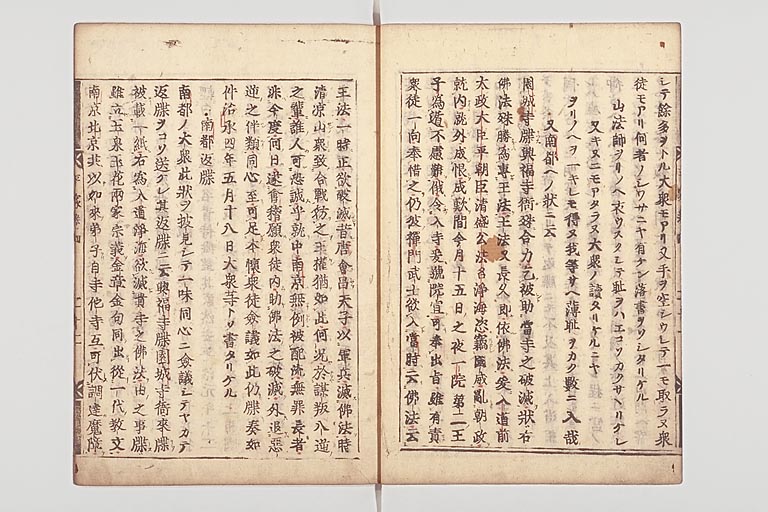 シテ餘多ヲトル大衆モアリ又手ヲ空シウシテ一モ取ラヌ衆
徒モアリ何者ノシワサニヤ有ケン落書ヲソシタリケル
山法師ヲリノヘ衣ウスクシテ耻ヲハエコソカクサヽリケレ
又キヌニモアタラヌ大衆ノ讀タリケルニヤ
ヲリノヘヲ一キレモ得ヌ我等サヘ薄耻ヲカク數ニ入哉
又南都ヘノ狀ニ云
園城寺牒興福寺衙殊合力乞被助當寺之破滅狀右
佛法殊勝爲專王法王法又長久即依佛法爰入道前
太政大臣平朝臣清盛公法名淨海恣竊國威亂朝政
就内就外成恨成歎間今月十五日之夜一院第二王
子爲遁不慮難俄令入寺爰號院宣可奉出旨雖有責
衆徒一向奉惜之仍彼禪門武士欲入當時云佛法云
王法一時正欲破滅昔唐會昌天子以軍兵滅佛法時
清凉山衆致合戰防之王權猶如此何况於謀叛八道
之輩誰人可怨誠乎就中南京無例被配流無罪長者
非今度何日遂會稽願衆徒内助佛法之破滅外退惡
逆之伴類同心至可足本懷衆徒僉議如此仍牒奏如
件治承四年五月十八日大衆等トソ書タリケル
南都返牒
南都ノ大衆此狀ヲ披見シテ一味同心ニ僉議シテヤカテ
返牒ヲコソ送ケレ其返牒ニ云興福寺牒園城寺衙來牒
被載一紙右爲入道淨海欲滅貴寺之佛法由之事牒
雖立玉泉玉花兩家宗義金章金句同出從一代教文
南京北京共以如來弟子自寺他寺互可伏調達魔障